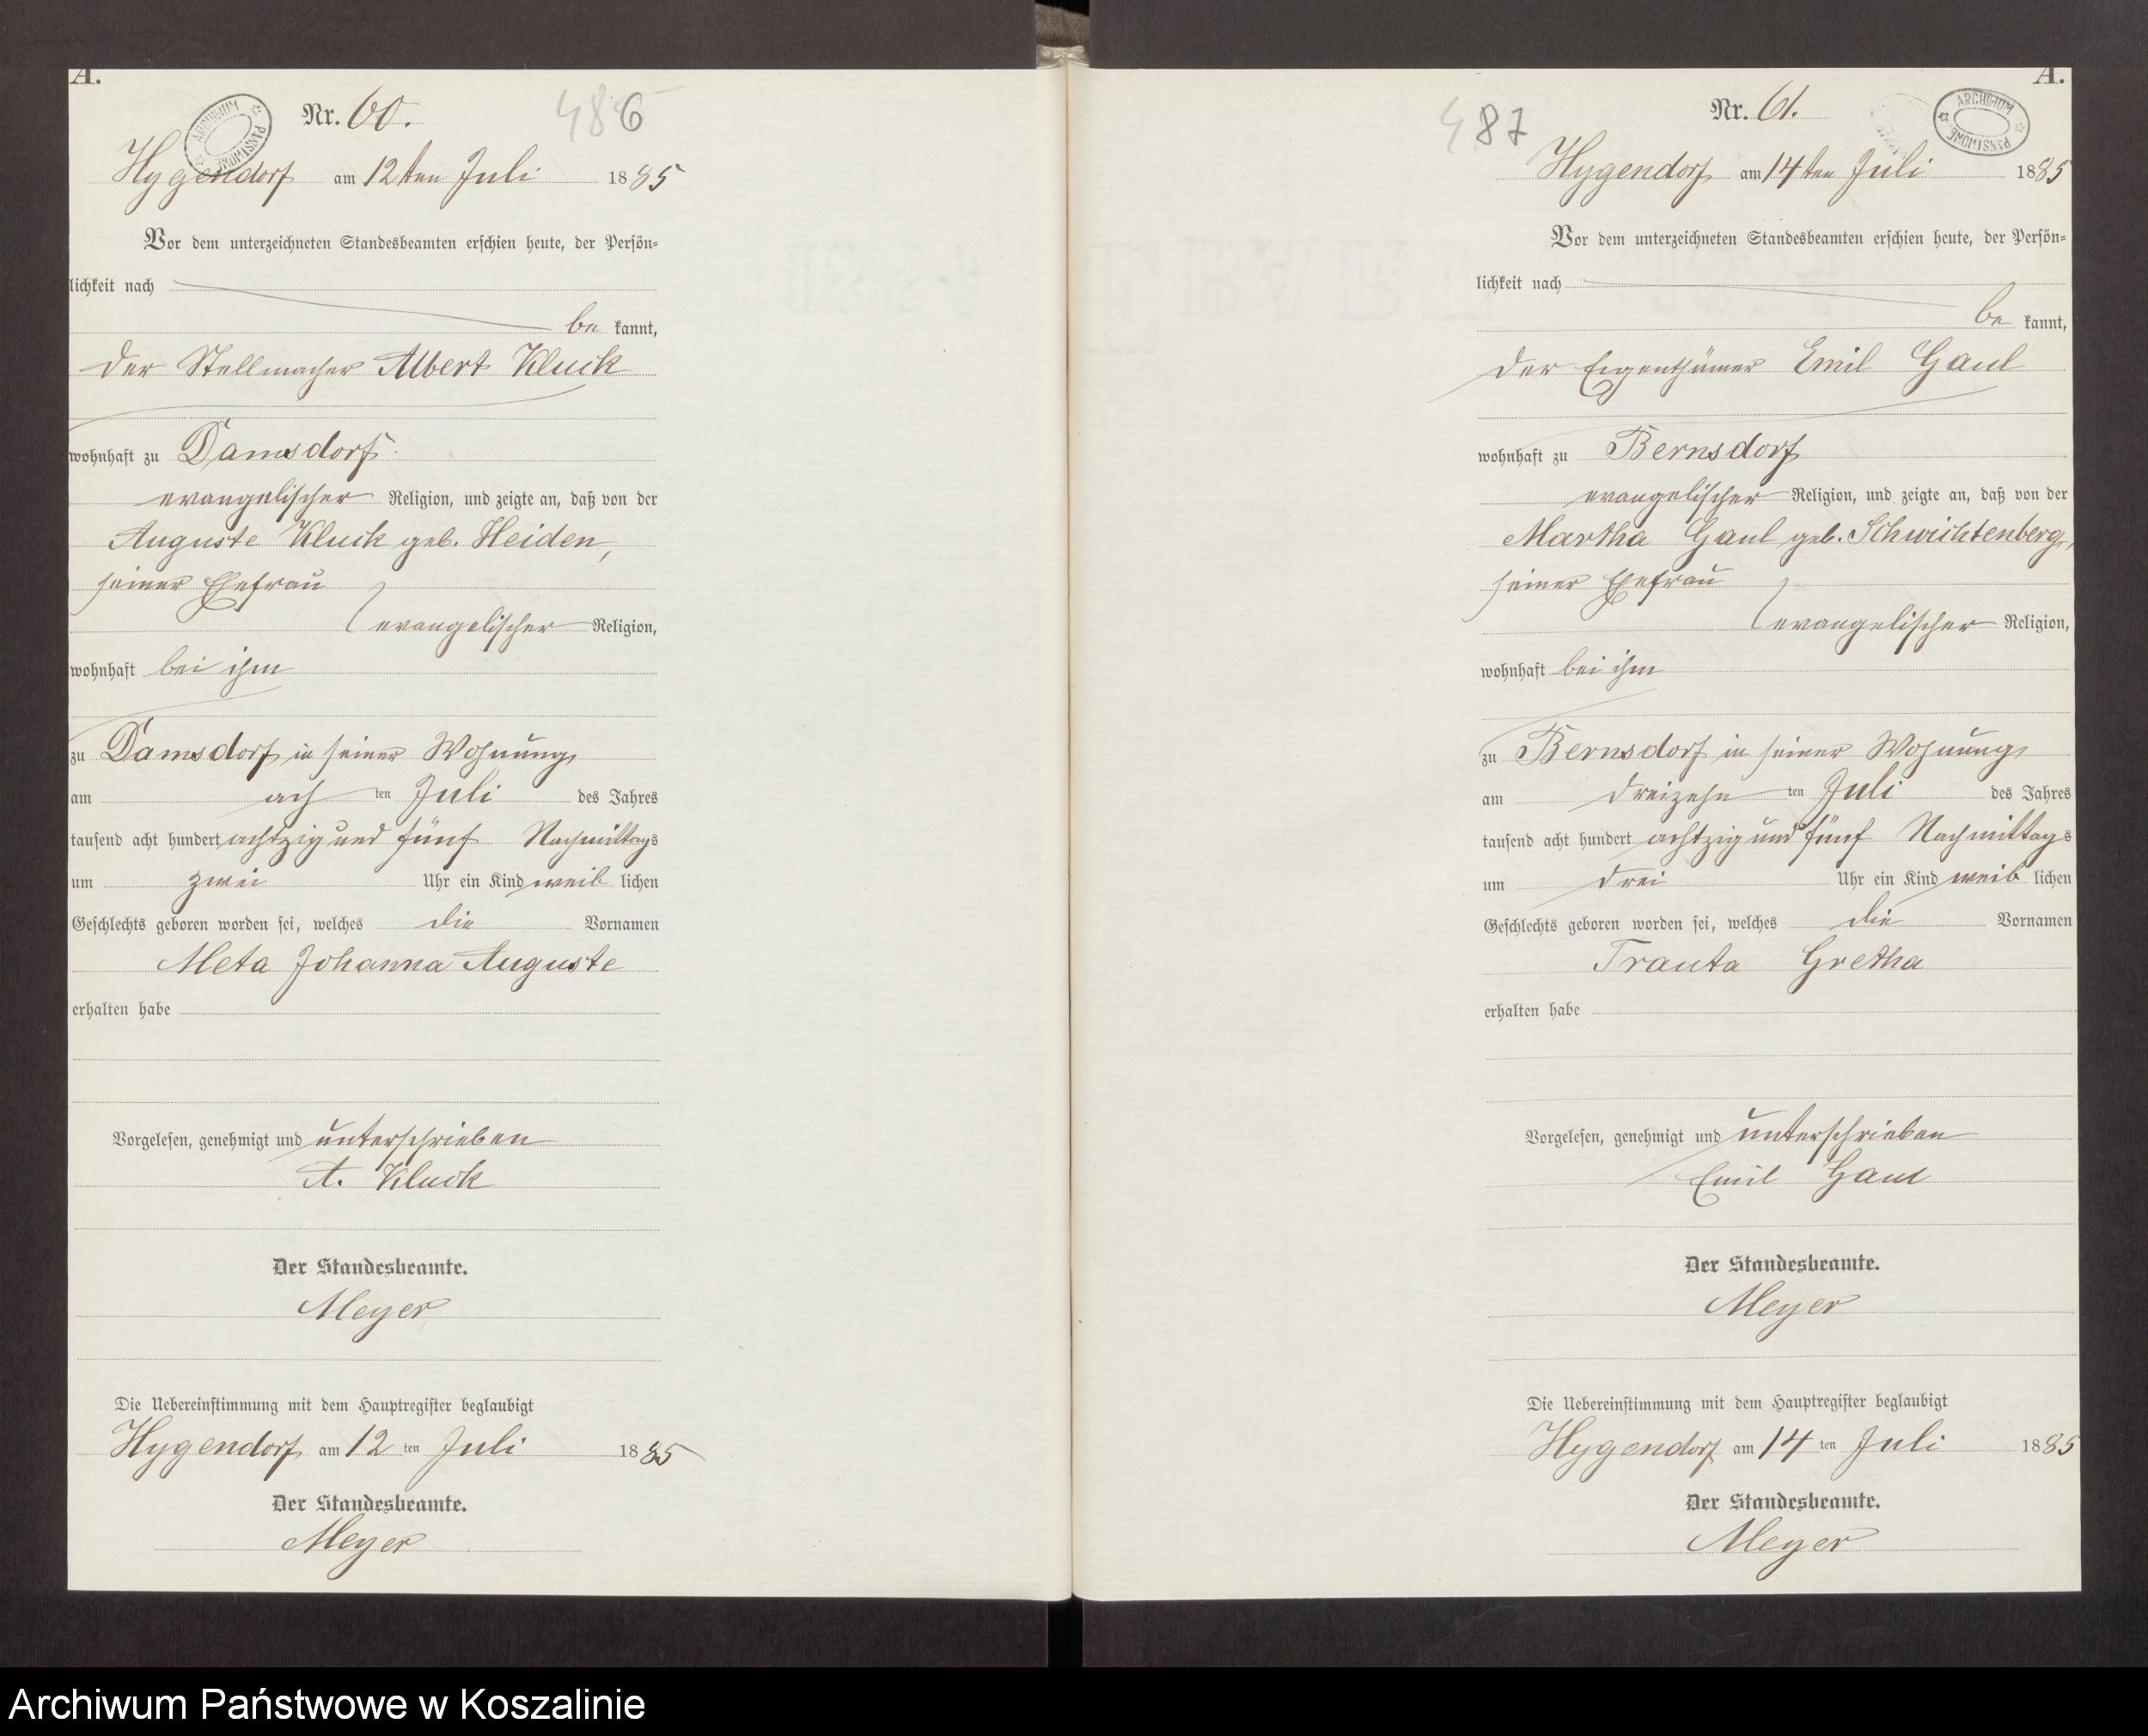 A.
ARCHIWUM PAŃSTWOWE
Nr. 60.
486
Hygendorf am 12ten Juli 1885
Vor dem unterzeichneten Standesbeamten erschien heute, der Persön-
lichkeit nach
be kannt,
der Stellmacher Albert Kluck
wohnhaft zu Damsdorf
evangelischer Religion, und zeigte an, daß von der
Auguste Kluck geb. Heiden,
seiner Ehefrau
evangelischer Religion,
wohnhaft bei ihm
zu Damsdorf in seiner Wohnung,
am ach ten Juli des Jahres
tausend acht hundert achtzig und fünf Nachmittags
um zwei Uhr ein Kind weib lichen
Geschlechts geboren worden sei, welches die Vornamen
Meta Johanna Auguste
erhalten habe
Vorgelesen, genehmigt und unterschrieben
A. Kluck
Der Standesbeamte.
Meyer
Die Uebereinstimmung mit dem Hauptregister beglaubigt
Hygendorf am 12 ten Juli 1885
Der Standesbeamte.
Meyer
A.
487
Nr. 61.
ARCHIWUM PAŃSTWOWE
Hygendorf am 14ten Juli 1885
Vor dem unterzeichneten Standesbeamten erschien heute, der Persön-
lichkeit nach
be kannt,
der Eigenthümer Emil Gaul
wohnhaft zu Bernsdorf
evangelischer Religion, und zeigte an, daß von der
Martha Gaul geb. Schwichtenberg,
seiner Ehefrau
evangelischer Religion,
wohnhaft bei ihm
zu Bernsdorf in seiner Wohnung,
am dreizehn ten Juli des Jahres
tausend acht hundert achtzig und fünf Nachmittags
um drei Uhr ein Kind weib lichen
Geschlechts geboren worden sei, welches die Vornamen
Trauta Gretha
erhalten habe
Vorgelesen, genehmigt und unterschrieben
Emil Gaul
Der Standesbeamte.
Meyer
Die Uebereinstimmung mit dem Hauptregister beglaubigt
Hygendorf am 14 ten Juli 1885
Der Standesbeamte.
Meyer
Archiwum Państwowe w Koszalinie